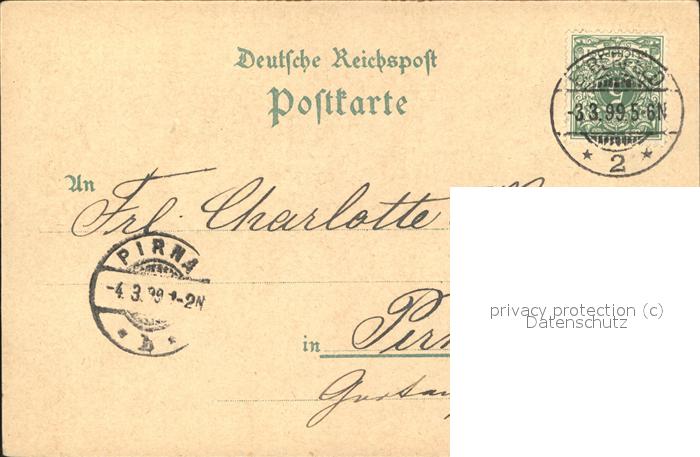 Deutsche Reichspost
Postkarte
ELBERFELD
5
-3.3.99.5-6N
* 2 *
An
Frl. Charlotte
PIRNA
-4.3.99 1-2N
privacy protection (c)
Datenschutz
in